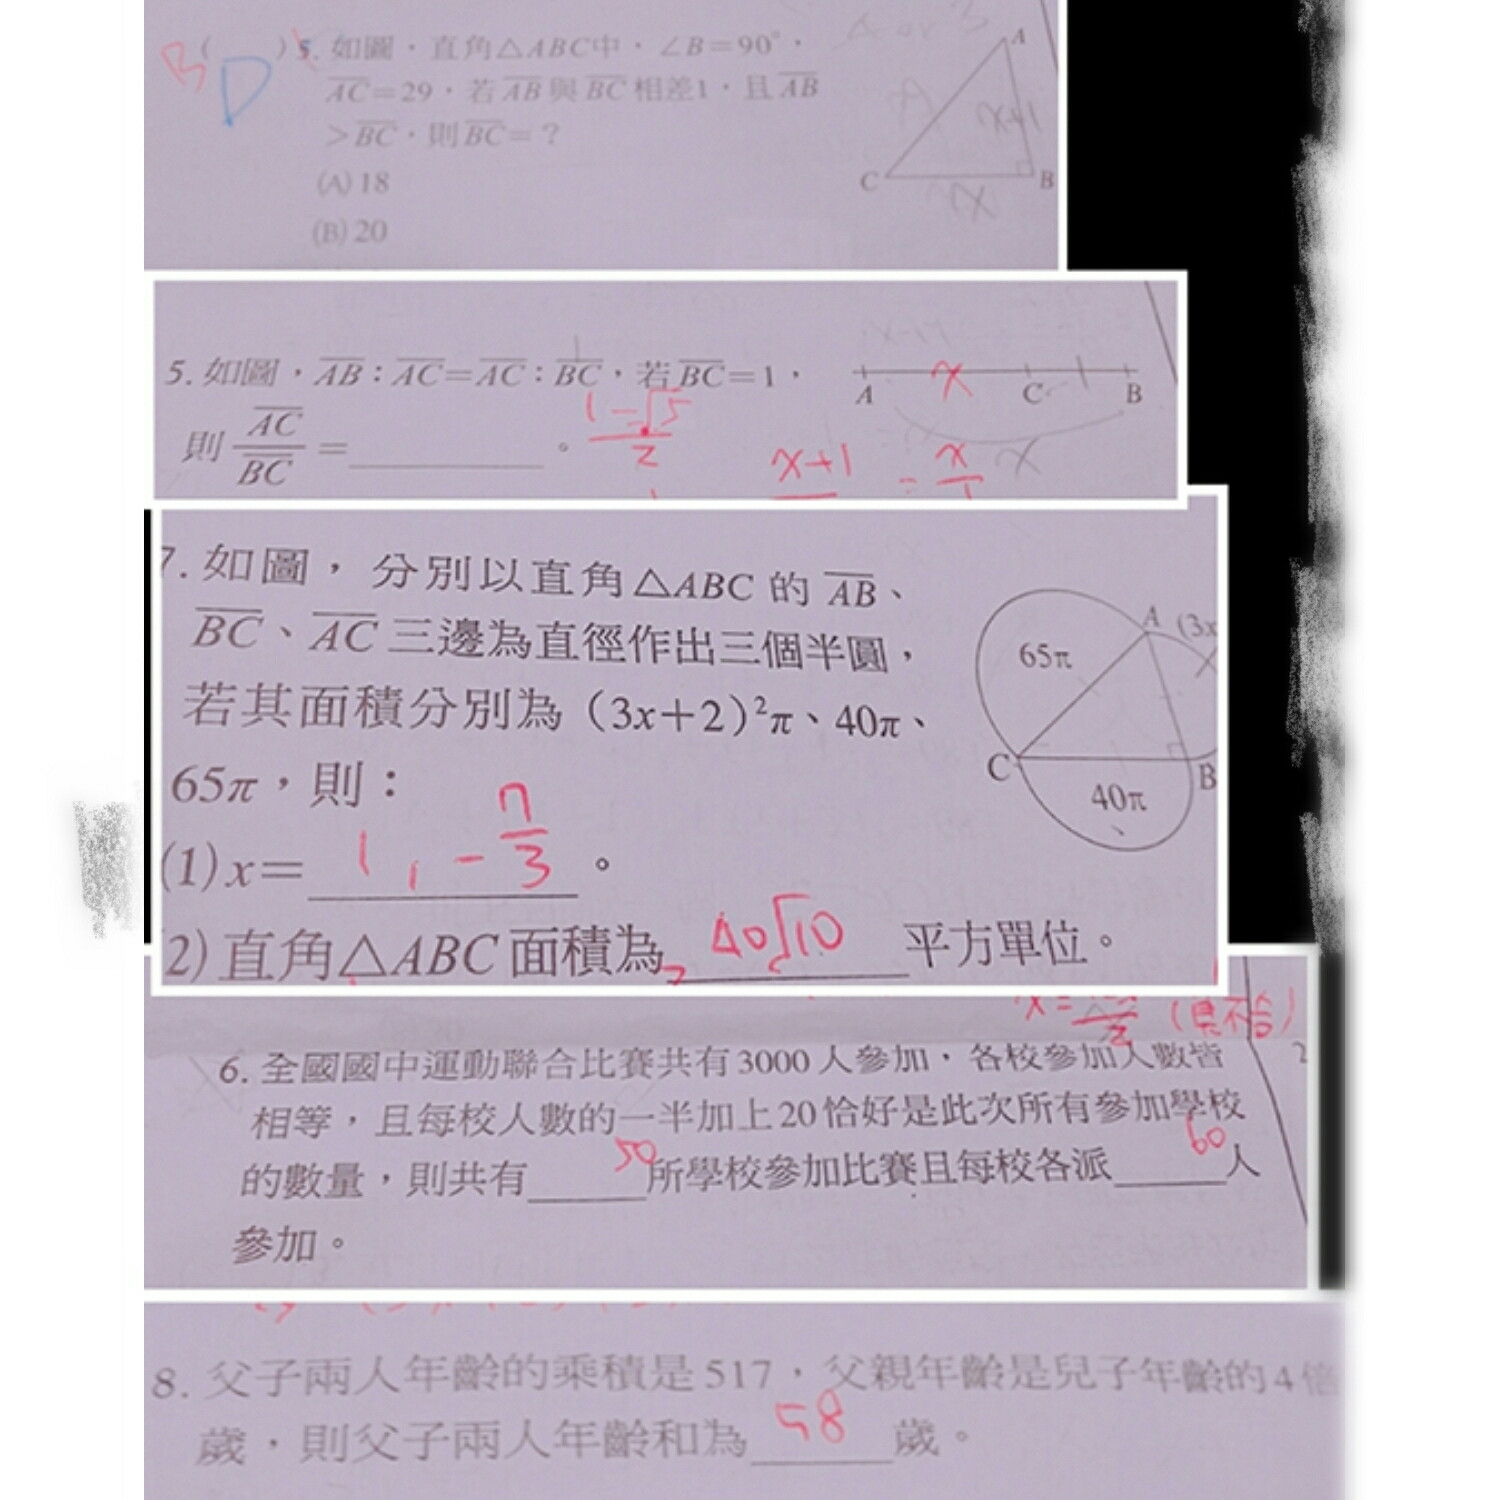 B( D )5. 如圖，直角△ABC中，∠B=90°，
AC=29，若AB與BC相差1，且AB
>BC，則BC=？
(A)18
(B)20
A
x+1
C
x
B
5. 如圖，AB：AC=AC：BC，若BC=1，
則 AC/BC =______。
1-√5/2
x+1 = x/1
A x C 1 B
x
7. 如圖，分別以直角△ABC 的 AB、
BC、AC 三邊為直徑作出三個半圓，
若其面積分別為（3x+2）²π、40π、
65π，則：
(1) x= 1, -7/3 。
(2) 直角△ABC 面積為 40√10 平方單位。
A (3x
65π
C B
40π
6. 全國國中運動聯合比賽共有3000人參加，各校參加人數皆
相等，且每校人數的一半加上20恰好是此次所有參加學校
的數量，則共有 50 所學校參加比賽且每校各派 60 人
參加。
8. 父子兩人年齡的乘積是517，父親年齡是兒子年齡的4倍
歲，則父子兩人年齡和為 58 歲。